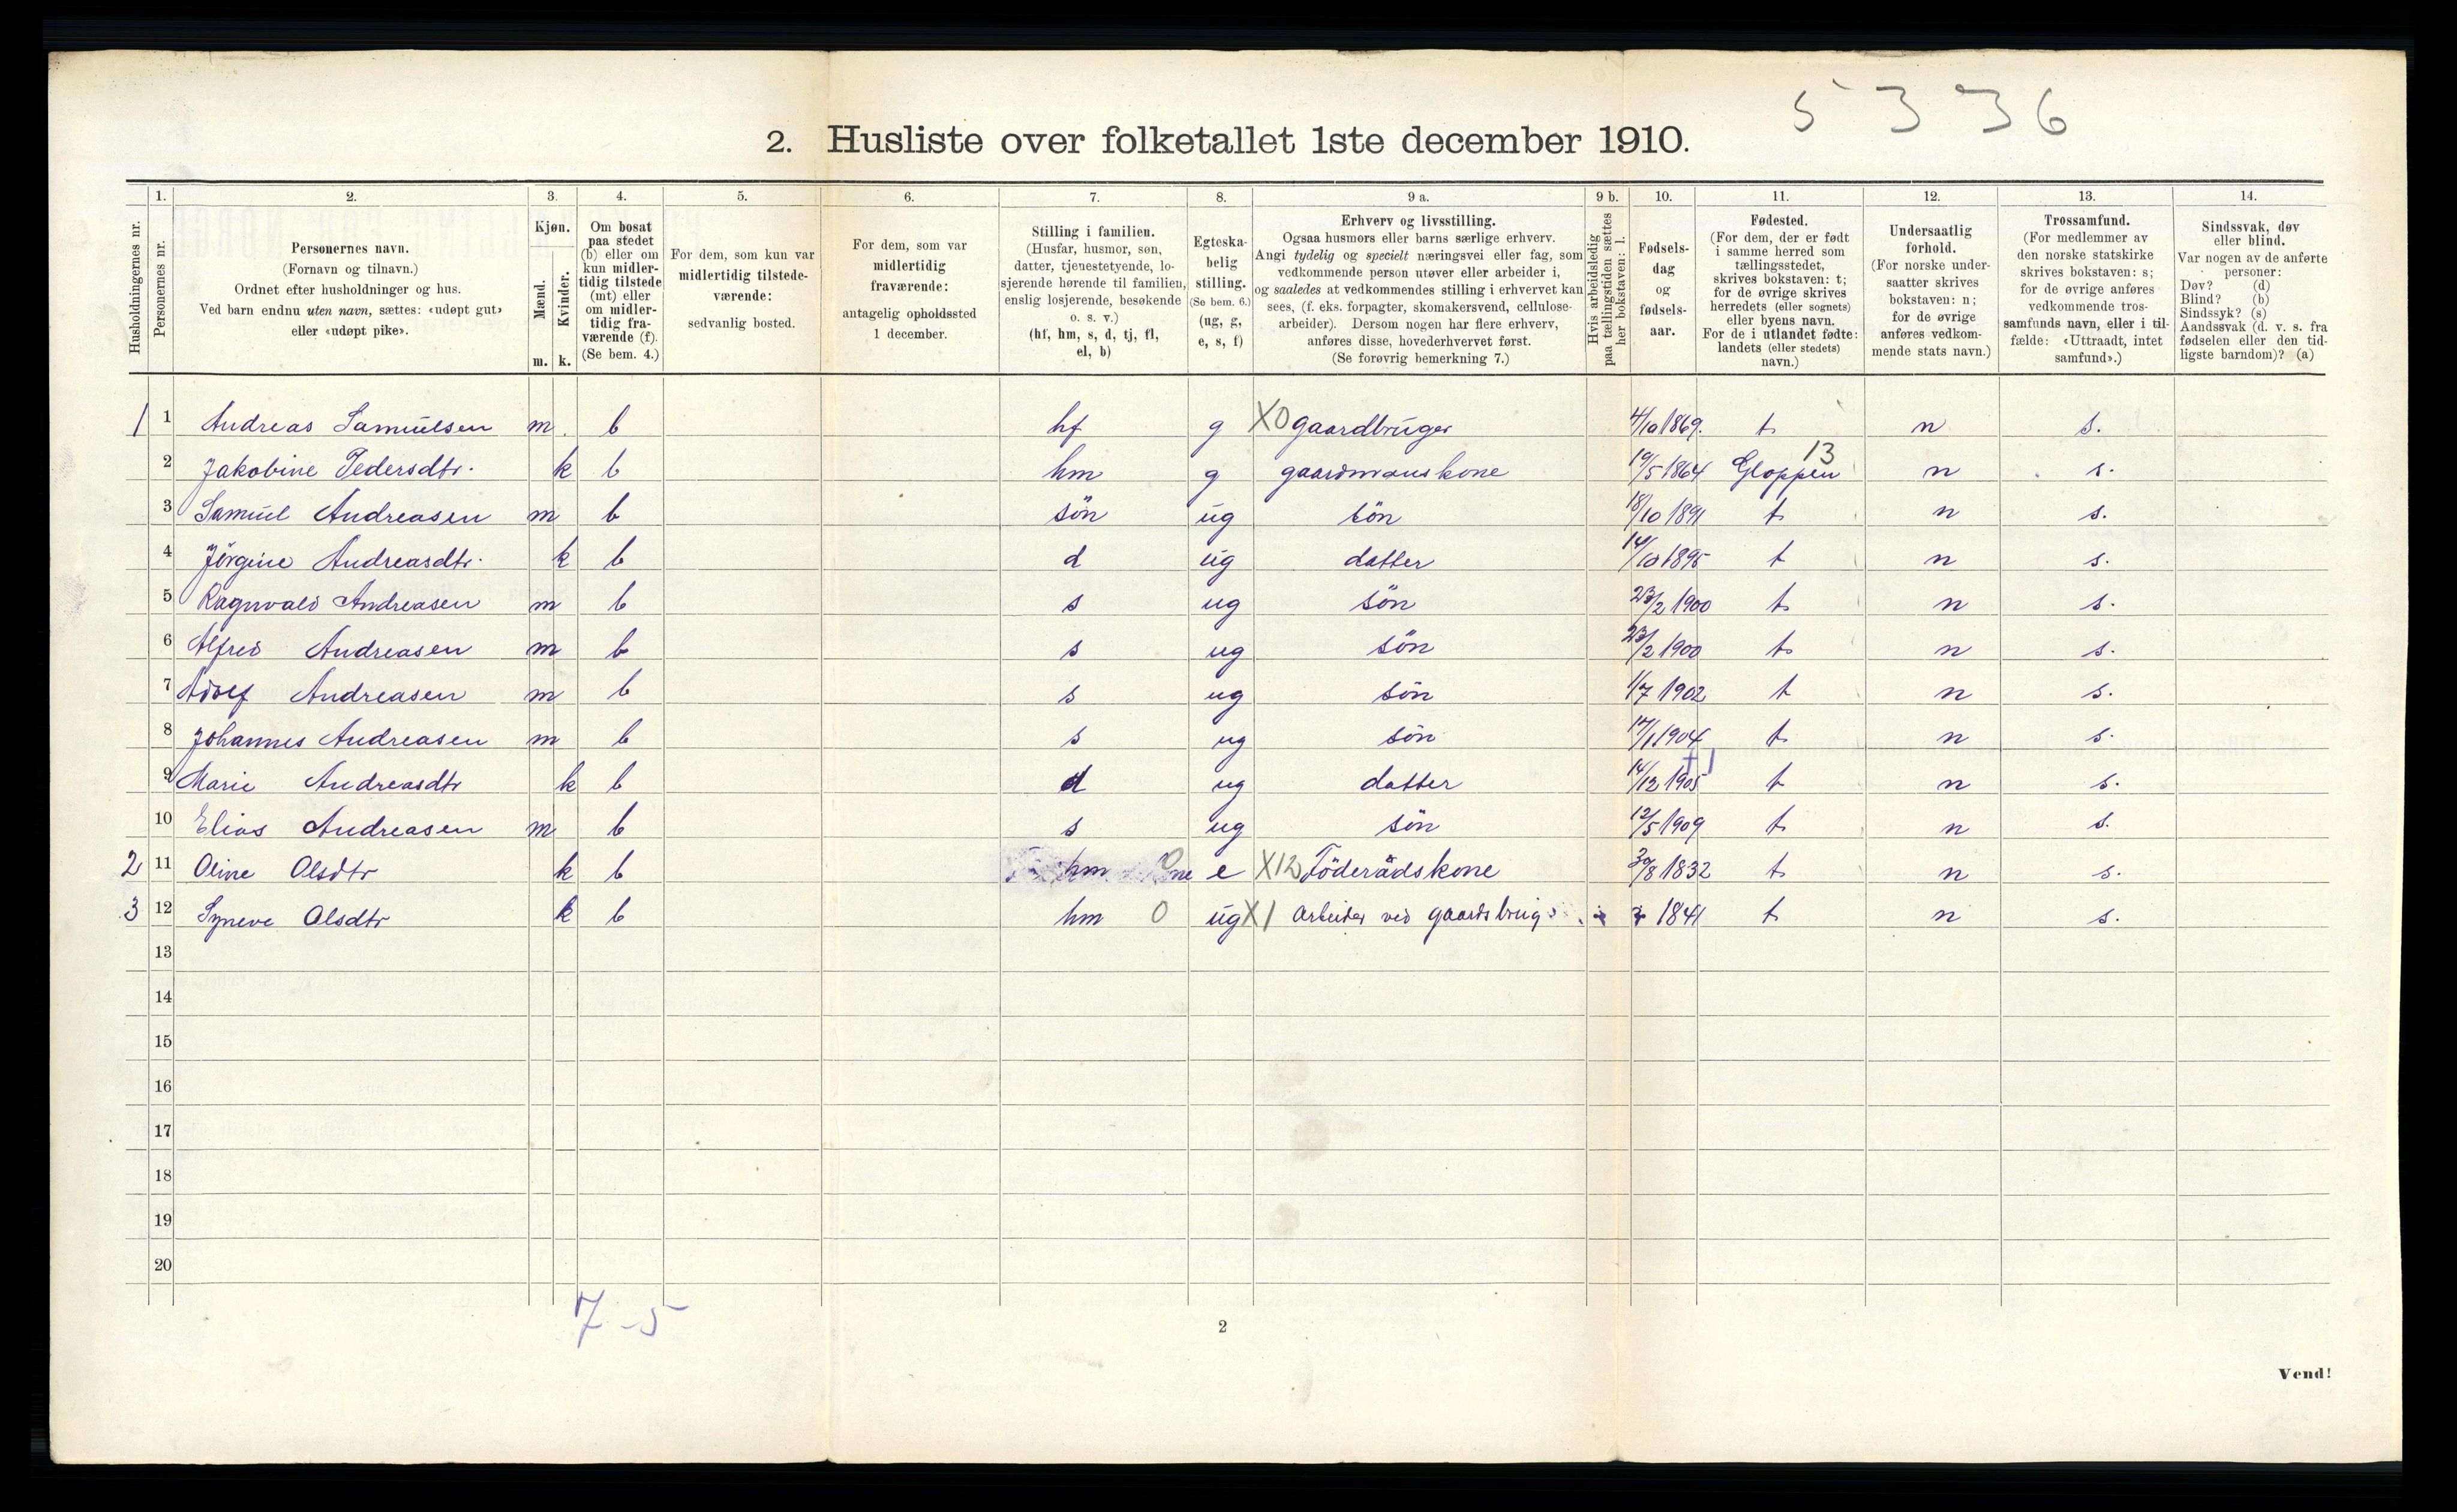 5 3 3 6
2. Husliste over folketallet 1ste december 1910.
Husholdningernes nr.
1. Personernes nr.
2. Personernes navn.
(Fornavn og tilnavn.)
Ordnet efter husholdninger og hus.
Ved barn endnu uten navn, sættes: «udøpt gut»
eller «udøpt pike».
3. Kjøn.
Mænd. Kvinder.
m. k.
4. Om bosat
paa stedet
(b) eller om
kun midler-
tidig tilstede
(mt) eller
om midler-
tidig fra-
værende (f).
(Se bem. 4.)
5. For dem, som kun var
midlertidig tilstede-
værende:
sedvanlig bosted.
6. For dem, som var
midlertidig
fraværende:
antagelig opholdssted
1 december.
7. Stilling i familien.
(Husfar, husmor, søn,
datter, tjenestetyende, lo-
sjerende hørende til familien,
enslig losjerende, besøkende
o. s. v.)
(hf, hm, s, d, tj, fl,
el, b)
8. Egteska-
belig
stilling.
(Se bem. 6.)
(ug, g,
e, s, f)
9 a. Erhverv og livsstilling.
Ogsaa husmors eller barns særlige erhverv.
Angi tydelig og specielt næringsvei eller fag, som
vedkommende person utøver eller arbeider i,
og saaledes at vedkommendes stilling i erhvervet kan
sees, (f. eks. forpagter, skomakersvend, cellulose-
arbeider). Dersom nogen har flere erhverv,
anføres disse, hovederhvervet først.
(Se forøvrig bemerkning 7.)
9 b. Hvis arbeidsledig
paa tællingstiden sættes
her bokstaven: l.
10. Fødsels-
dag
og
fødsels-
aar.
11. Fødested.
(For dem, der er født
i samme herred som
tællingsstedet,
skrives bokstaven: t;
for de øvrige skrives
herredets (eller sognets)
eller byens navn.
For de i utlandet fødte:
landets (eller stedets)
navn.)
12. Undersaatlig
forhold.
(For norske under-
saatter skrives
bokstaven: n;
for de øvrige
anføres vedkom-
mende stats navn.)
13. Trossamfund.
(For medlemmer av
den norske statskirke
skrives bokstaven: s;
for de øvrige anføres
vedkommende tros-
samfunds navn, eller i til-
fælde: «Uttraadt, intet
samfund».)
14. Sindssvak, døv
eller blind.
Var nogen av de anførte
personer:
Døv? (d)
Blind? (b)
Sindssyk? (s)
Aandssvak (d. v. s. fra
fødselen eller den tid-
ligste barndom)? (a)
1 1 Andreas Samuelsen m. b hf g X0 gaardbruger 4/10 1869. t. n s.
2 Jakobine Pedersdtr. k b hm g gaardmanskone 19/5 1864 Gloppen 13 n s.
3 Samuel Andreasen m b sön ug sön 18/10 1891 t n s.
4 Jörgine Andreasdtr. k b d ug datter 14/10 1895 t n s.
5 Ragnvald Andreasen m b s ug sön 23/2 1900 t. n s.
6 Alfred Andreasen m b s ug sön 23/2 1900 t. n s.
7 Adolf Andreasen m b s ug sön 1/7 1902 t n s.
8 Johannes Andreasen m b s ug sön 17/1 1904 t. n s.
9 Marie Andreasdtr k b d ug datter 14/12 1905 t n s.
10 Elias Andreasen m b s ug sön 12/5 1909 t. n s.
2 11 Oline Olsdtr k b hm 0 e X12 Föderådskone 30/8 1832 t. n s.
3 12 Syneve Olsdtr k b hm 0 ug X1 Arbeider ved gaardsbrug 1841 t. n s.
13
14
15
16
17
18
19
20
7 - 5
2
Vend!